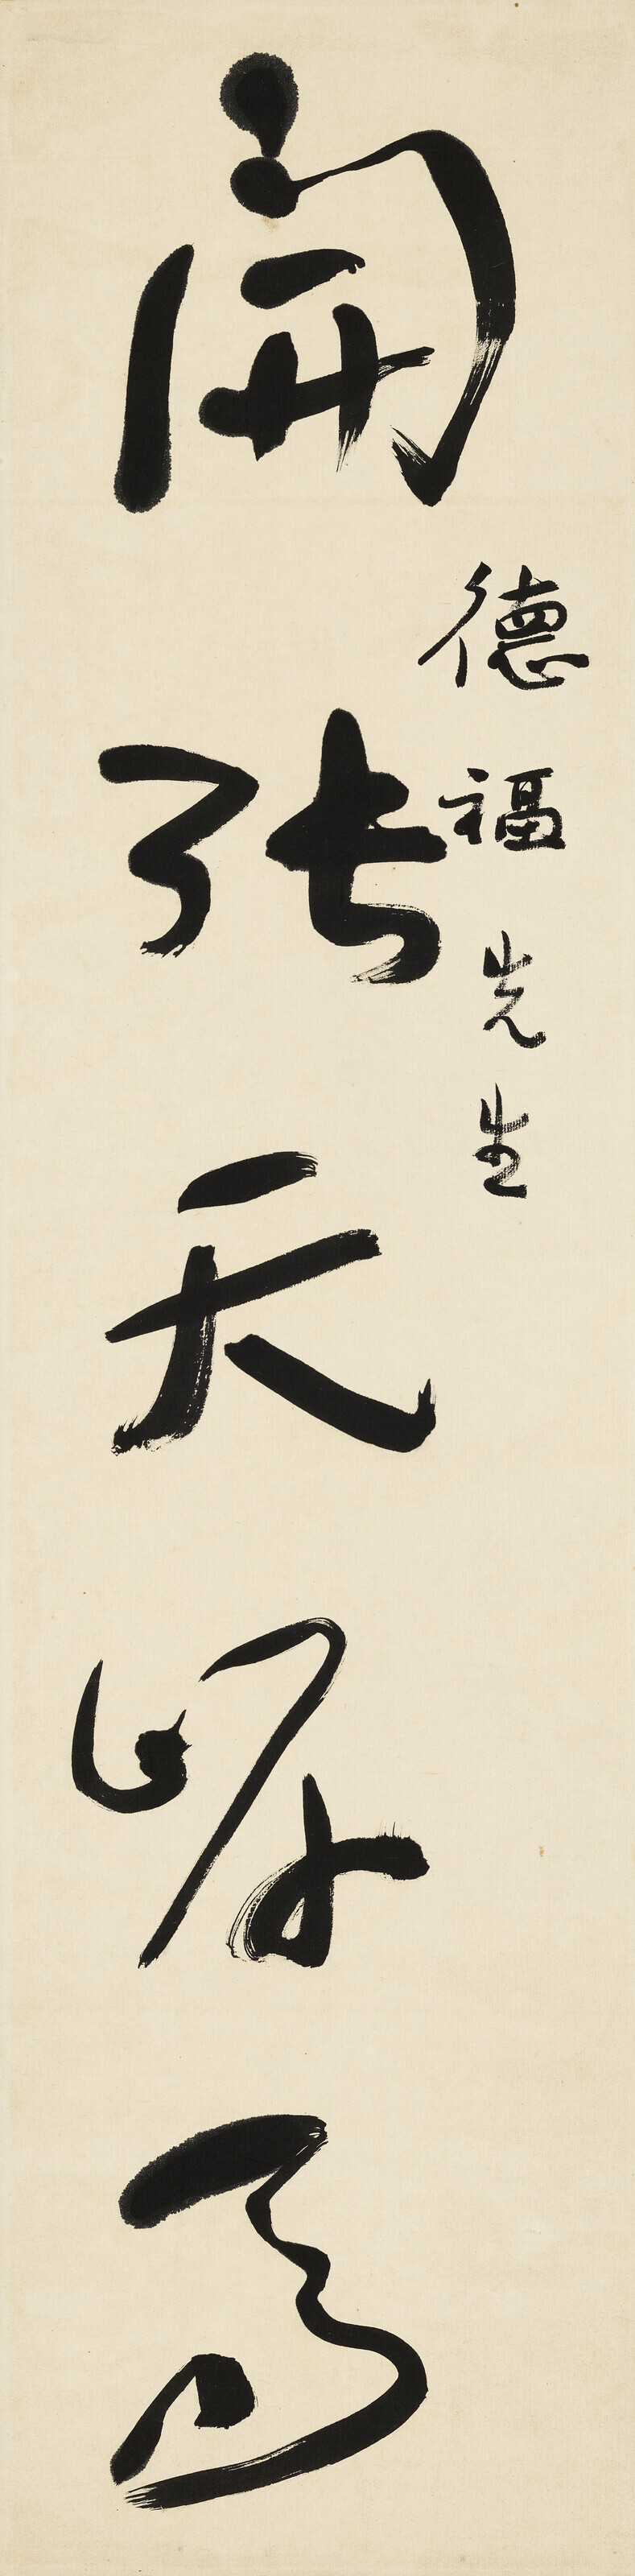 德福先生
開張天岸馬